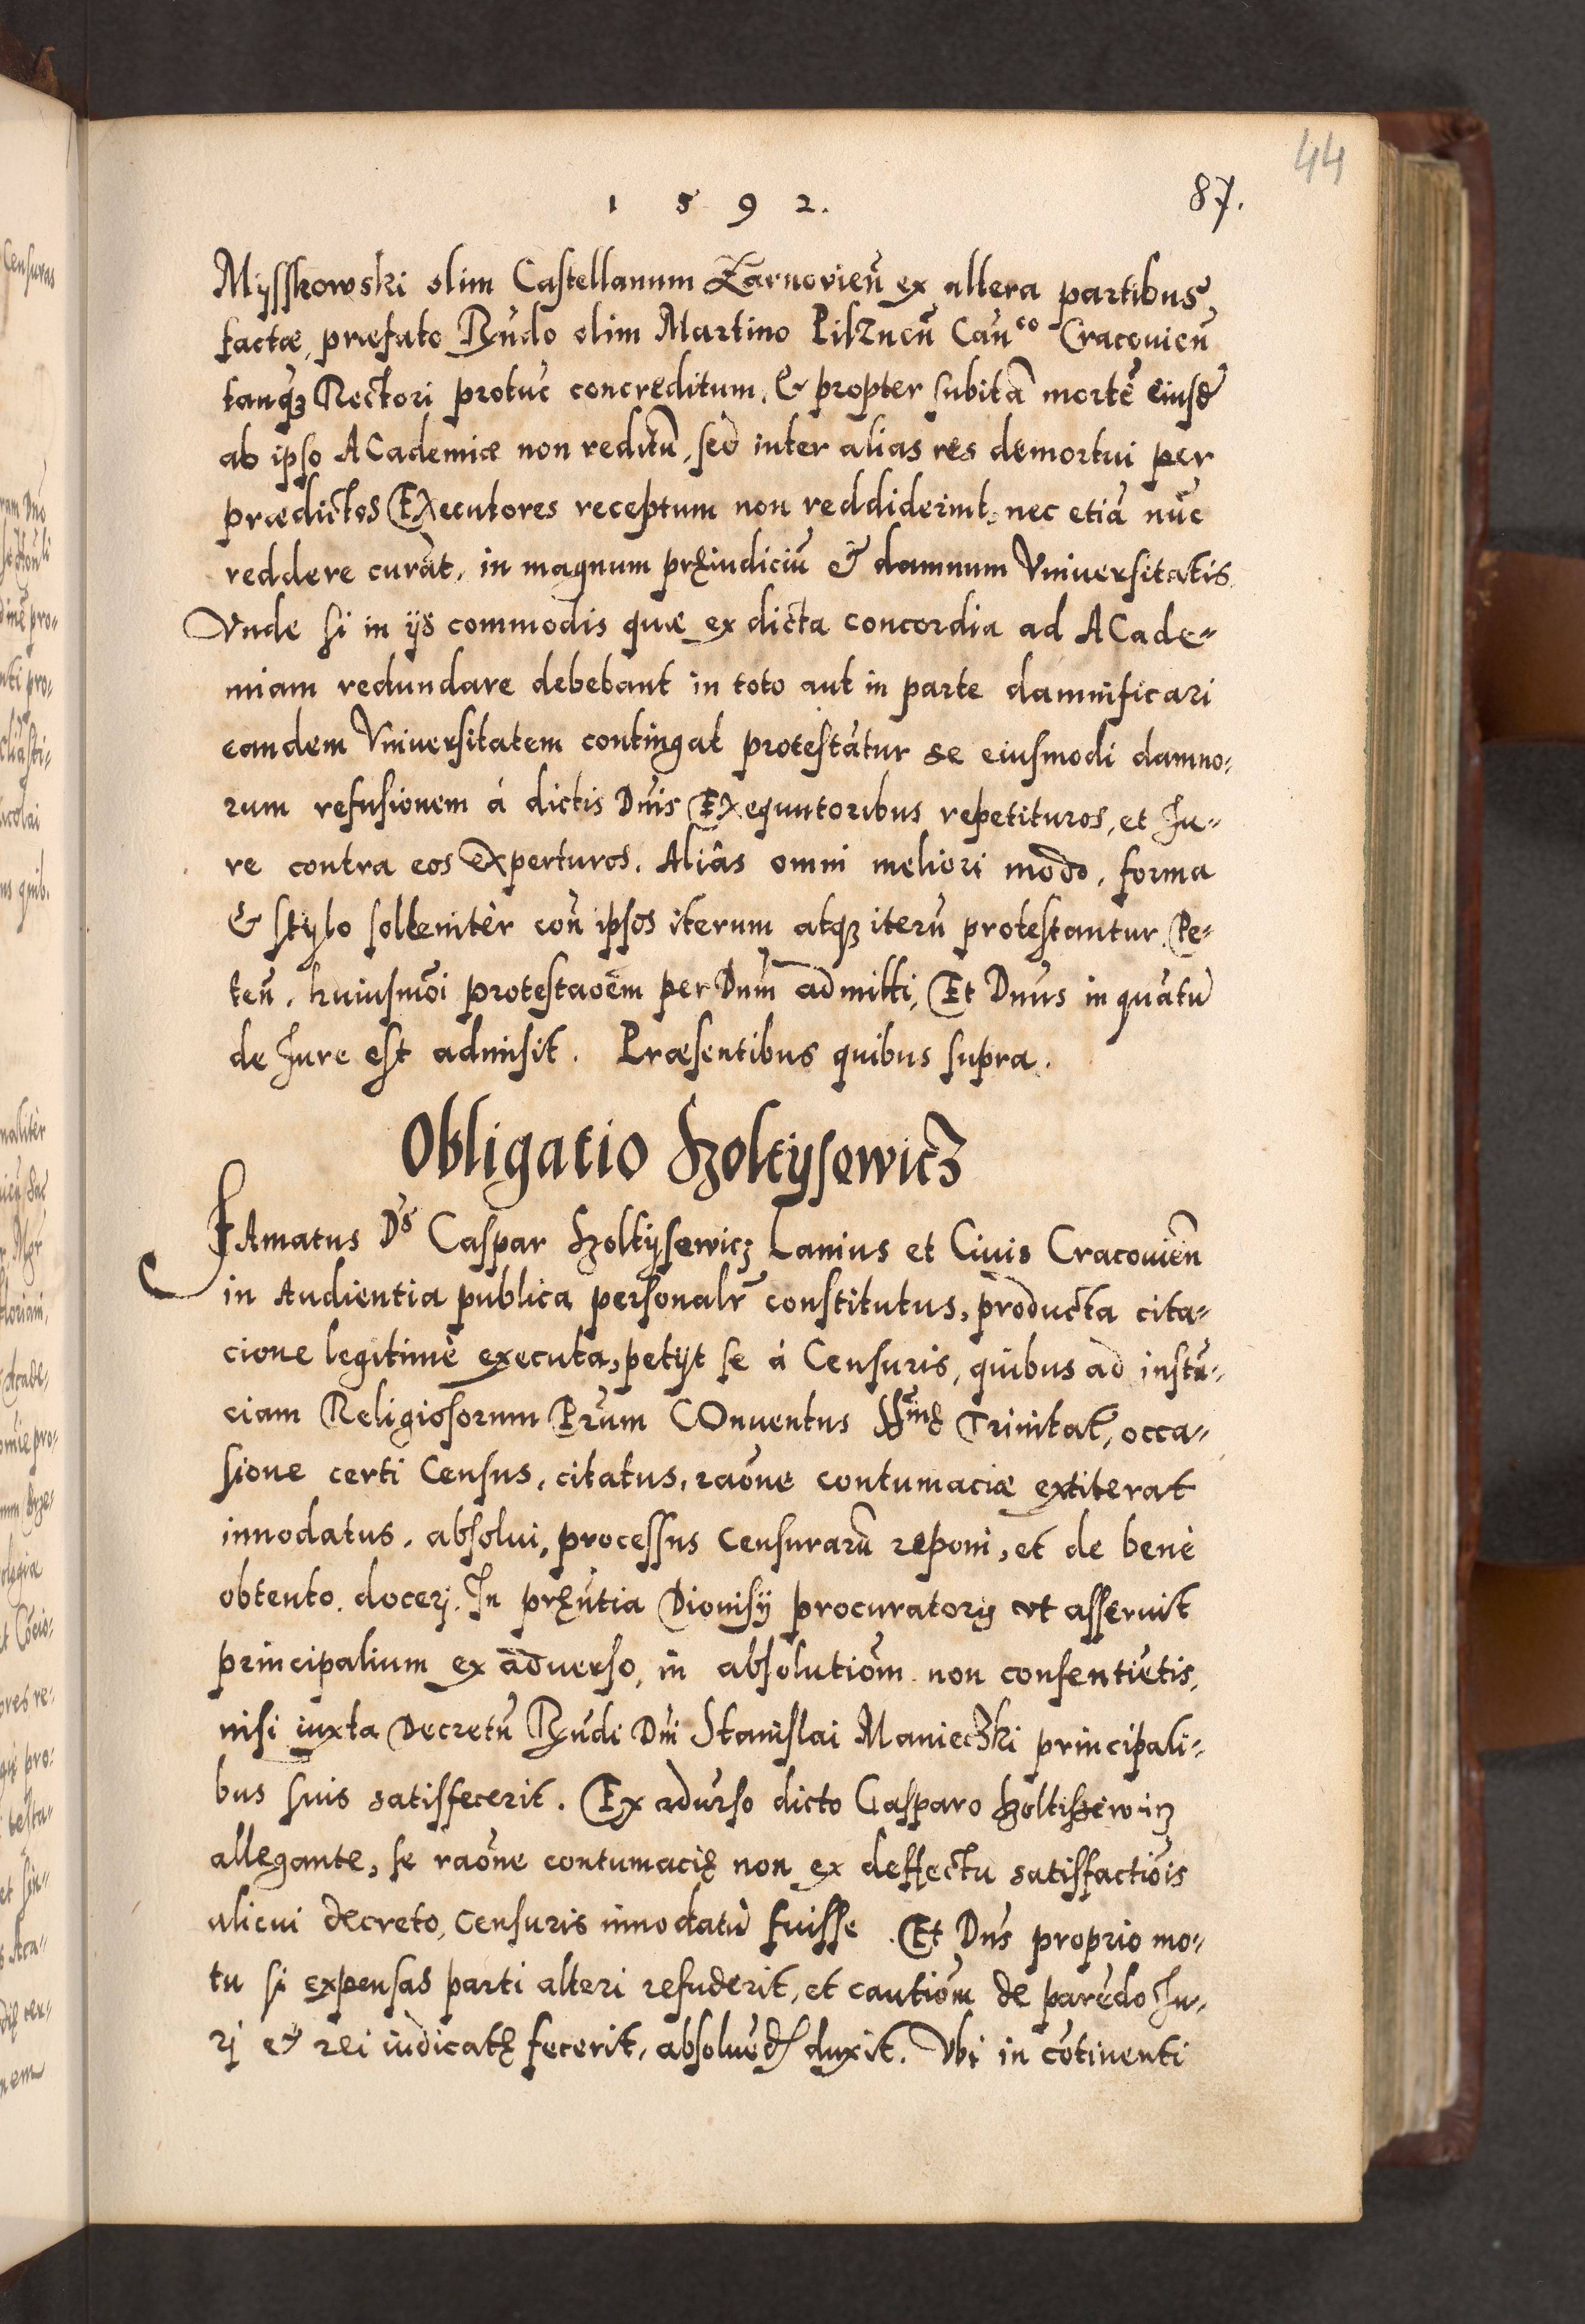 44
1 5 9 2.
87.
Mysskowski olim Castellanum Żarnovień ex altera partibus,
factæ, præfato Rńdo olim Martino Pilzneń Cań^co Cracovień
tanq́ꝫ Rectori protūc concreditum. & propter subitā mortē eiusđ
ab ipso ACademiæ non reditū, sed inter alias res demortui per
prædictos EXecutores receptum non reddiderint, nec etiā nūc
reddere curāt, in magnum pręiudiciū & damnum Vniversitatis.
Vnde si in ijs commodis quæ ex dicta concordia ad ACade-
miam redundare debebant in toto aut in parte damnificari
eandem Vniversitatem contingat protestātur se eiusmodi damno-
rum refusionem á dictis Dnis EXequutoribus repetituros, et Ju-
re contra eos experturos. Aliâs omni meliori modo, forma
& stylo sollenitèr coñ ipsos iterum atqꝫ iterū protestantur. Pe-
teñ. huiusmōi protestaōēm per Dnm̄ admitti, Et Dnūs in quātū
de Jure est admisit. Præsentibus quibus supra.
Obligatio Szoltysowicz
FAmatus D^s Caspar Szoltysewicz Lanius et Ciuis Cracouień
in Audientia publica personalr̄ constitutus, producta cita-
cione legitimè executa, petijt se á Censuris, quibus ad instā-
ciam Religiosorum Prūm COnuentus SS^mę Trinitat̄, occa-
sione certi Census, citatus, raōne contumaciæ extiterat
innodatus, absolui, processus Censurarū reponi, et de benè
obtento docerj. In pręn̄tia Dionisij procuratoris vt asseruit
principalium ex aduerso, in absolutiōm non consentiētis,
nisi iuxta Decretū Rńdi Dn̄i Stanislai Manieczki principali-
bus suis satisfecerit. Ex adurso dicto Casparo Szoltiszewicz
allegante, se raōne contumacię non ex deffectu satisfactiōis
alicui decreto, Censuris innodatū fuisse. Et Dns̄ proprio mo-
tu si expensas parti alteri refuderit, et cautiōm de parēdo Ju-
rj & rei iudicatę fecerit, absoluēd duxit. Vbi in cōtinenti